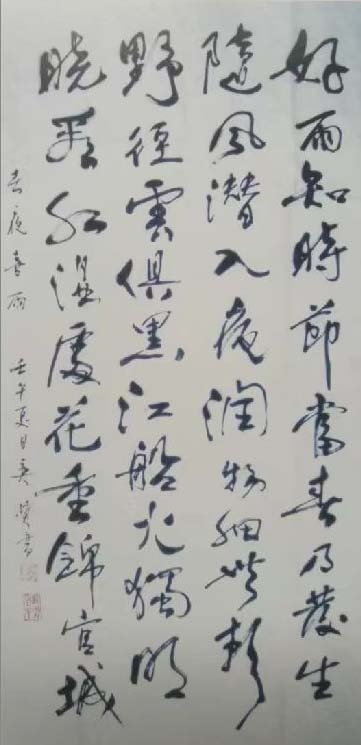 好雨知時節當春乃發生
隨風潜入夜潤物細無聲
野徑雲俱黑江船火獨明
曉看紅濕處花重錦官城
春夜喜雨 壬午夏日 書